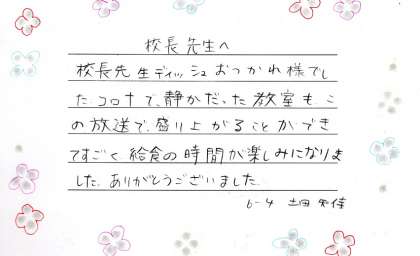 校長先生へ
校長先生ディッシュおつかれ様でし
た。コロナで、静かだった教室も、こ
の放送で、盛り上がることができ
てすごく給食の時間が楽しみになりま
した。ありがとうございました。
6-4